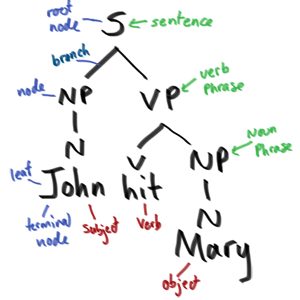 root
node
S
sentence
branch
node
NP
VP
verb
phrase
N
V
NP
Noun
Phrase
leaf
John
hit
N
terminal
node
subject
verb
Mary
object